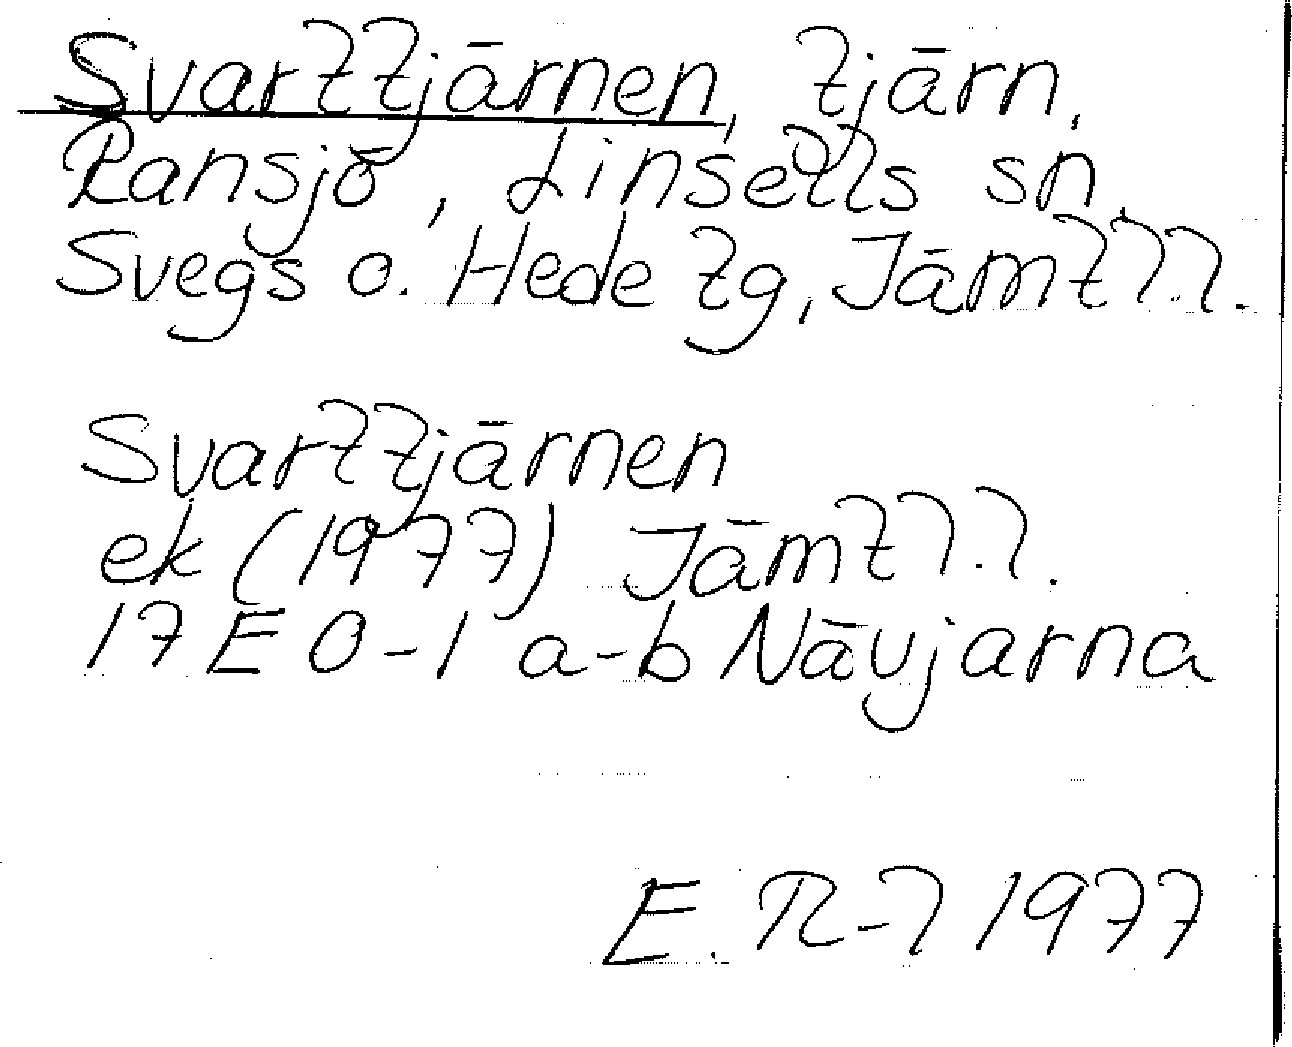 Svarttjärnen, tjärn,
Ransjö, Linsells sn,
Svegs o. Hede tg, Jämtl.l.
Svarttjärnen
ek (1977) Jämtl.l.
17 E 0-1 a-b Nävjarna
E. R-l 1977